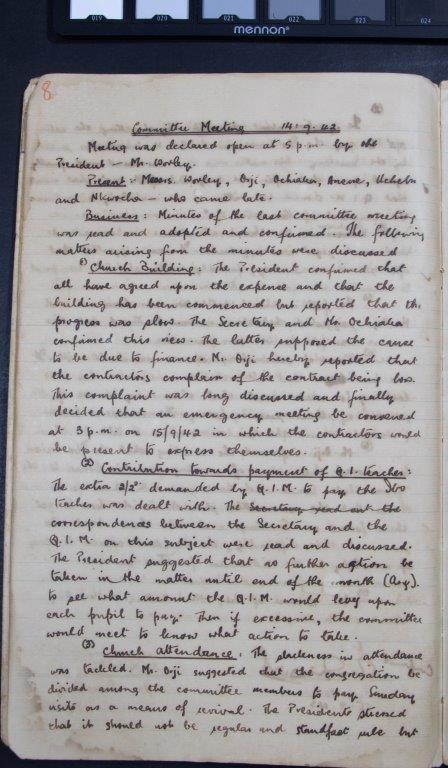 019 020 021 022 023 024
mennon
8
Committee Meeting 14.9.42
Meeting was declared open at 5 p.m. by the
President – Mr. Worley.
Present: Messrs. Worley, Orji, Ochiaka, Anene, Uchebu
and Nkwocha – who came late.
Business: Minutes of the last committee meeting
was read and adopted and confirmed. The following
matters arising from the minutes were discussed
(1) Church Building: The President confirmed that
all have agreed upon the expense and that the
building has been commenced but reported that the
progress was slow. The Secretary and Mr. Ochiaka
confirmed this view. The latter supposed the cause
to be due to finance. Mr. Orji hereby reported that
the contractors complain of the contract being low.
This complaint was long discussed and finally
decided that an emergency meeting be convened
at 3 p.m. on 15/9/42 in which the contractors would
be present to express themselves.
(2) Contribution towards payment of Q.I. teacher:
The extra 2/2d demanded by Q.I.M. to pay the
teacher was dealt with. The Secretary read out the
correspondences between the Secretary and the
Q.I.M. on this subject were read and discussed.
The President suggested that no further action be
taken in the matter until end of the month
to see what amount the Q.I.M. would levy upon
each pupil to pay. Then if excessive, the committee
would meet to know what action to take.
(3) Church attendance: The slackness in attendance
was tackled. Mr. Orji suggested that the congregation be
divided among the committee members to pay Sunday
visits as a means of revival. The Presidents stressed
that it should not be regular and standfast rule but